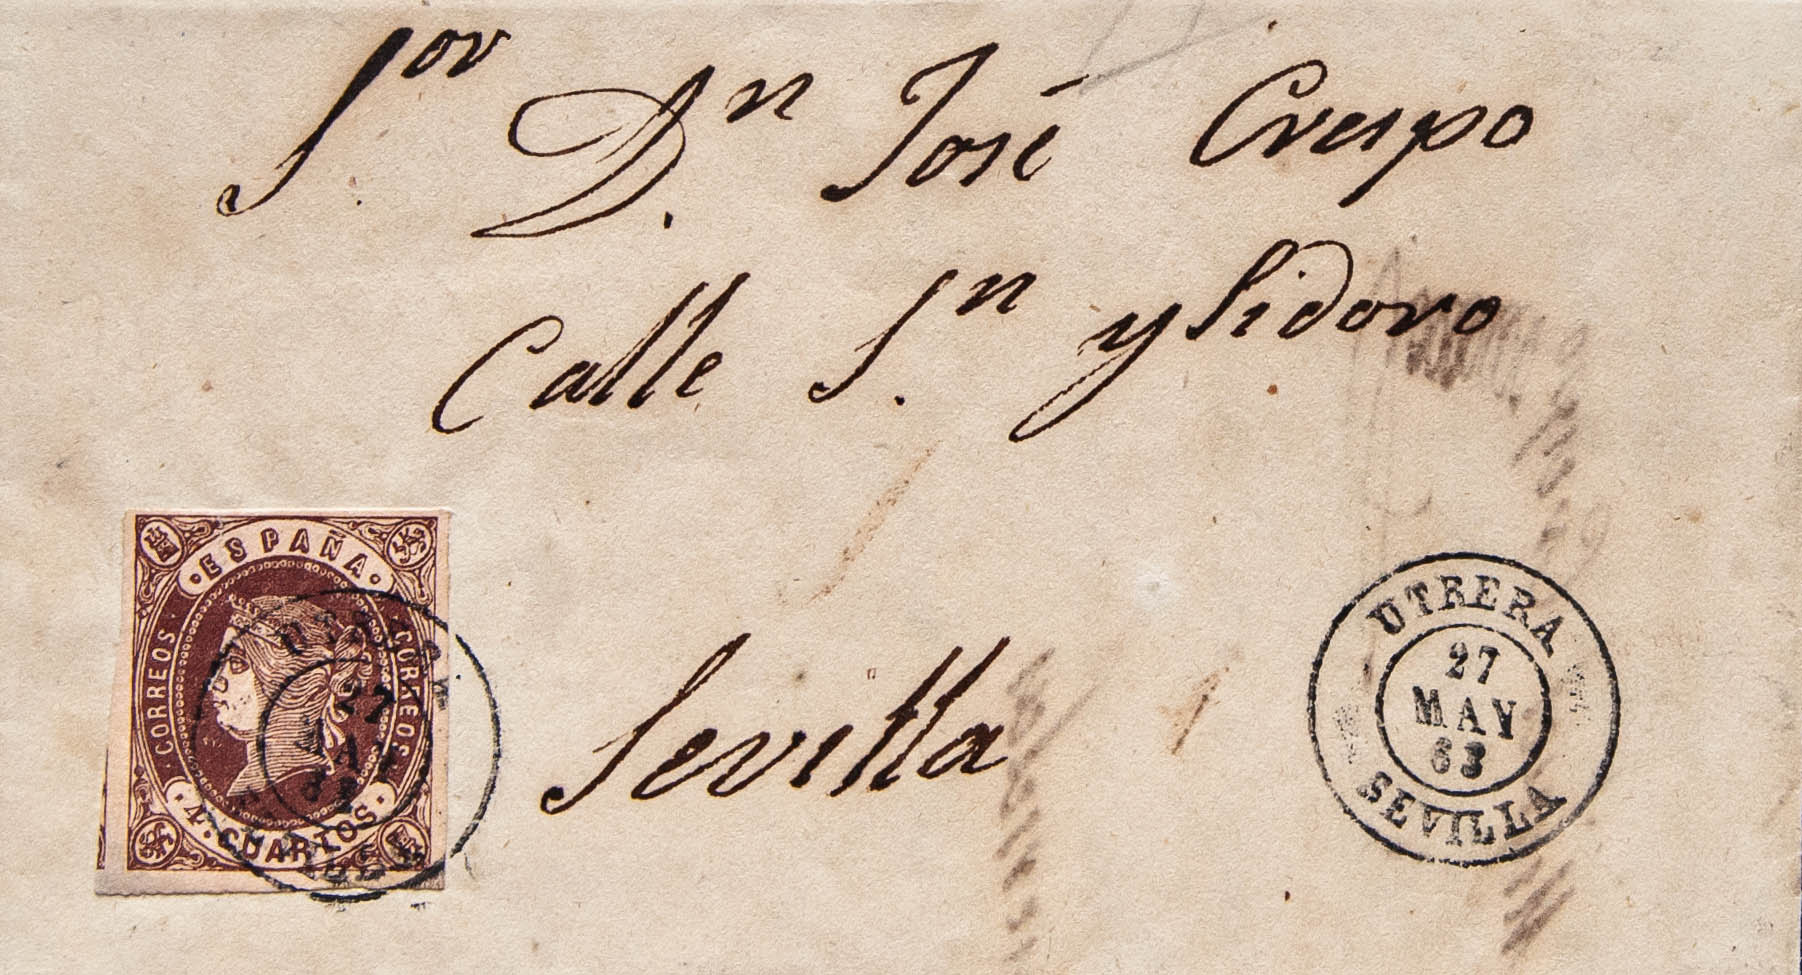 Sor Dn. José Crespo
Calle Sn. ysidoro
Sevilla
ESPAÑA
CORREOS
CORREOS
4. CUARTOS
27
MAY
63
UTRERA
27
MAY
63
SEVILLA